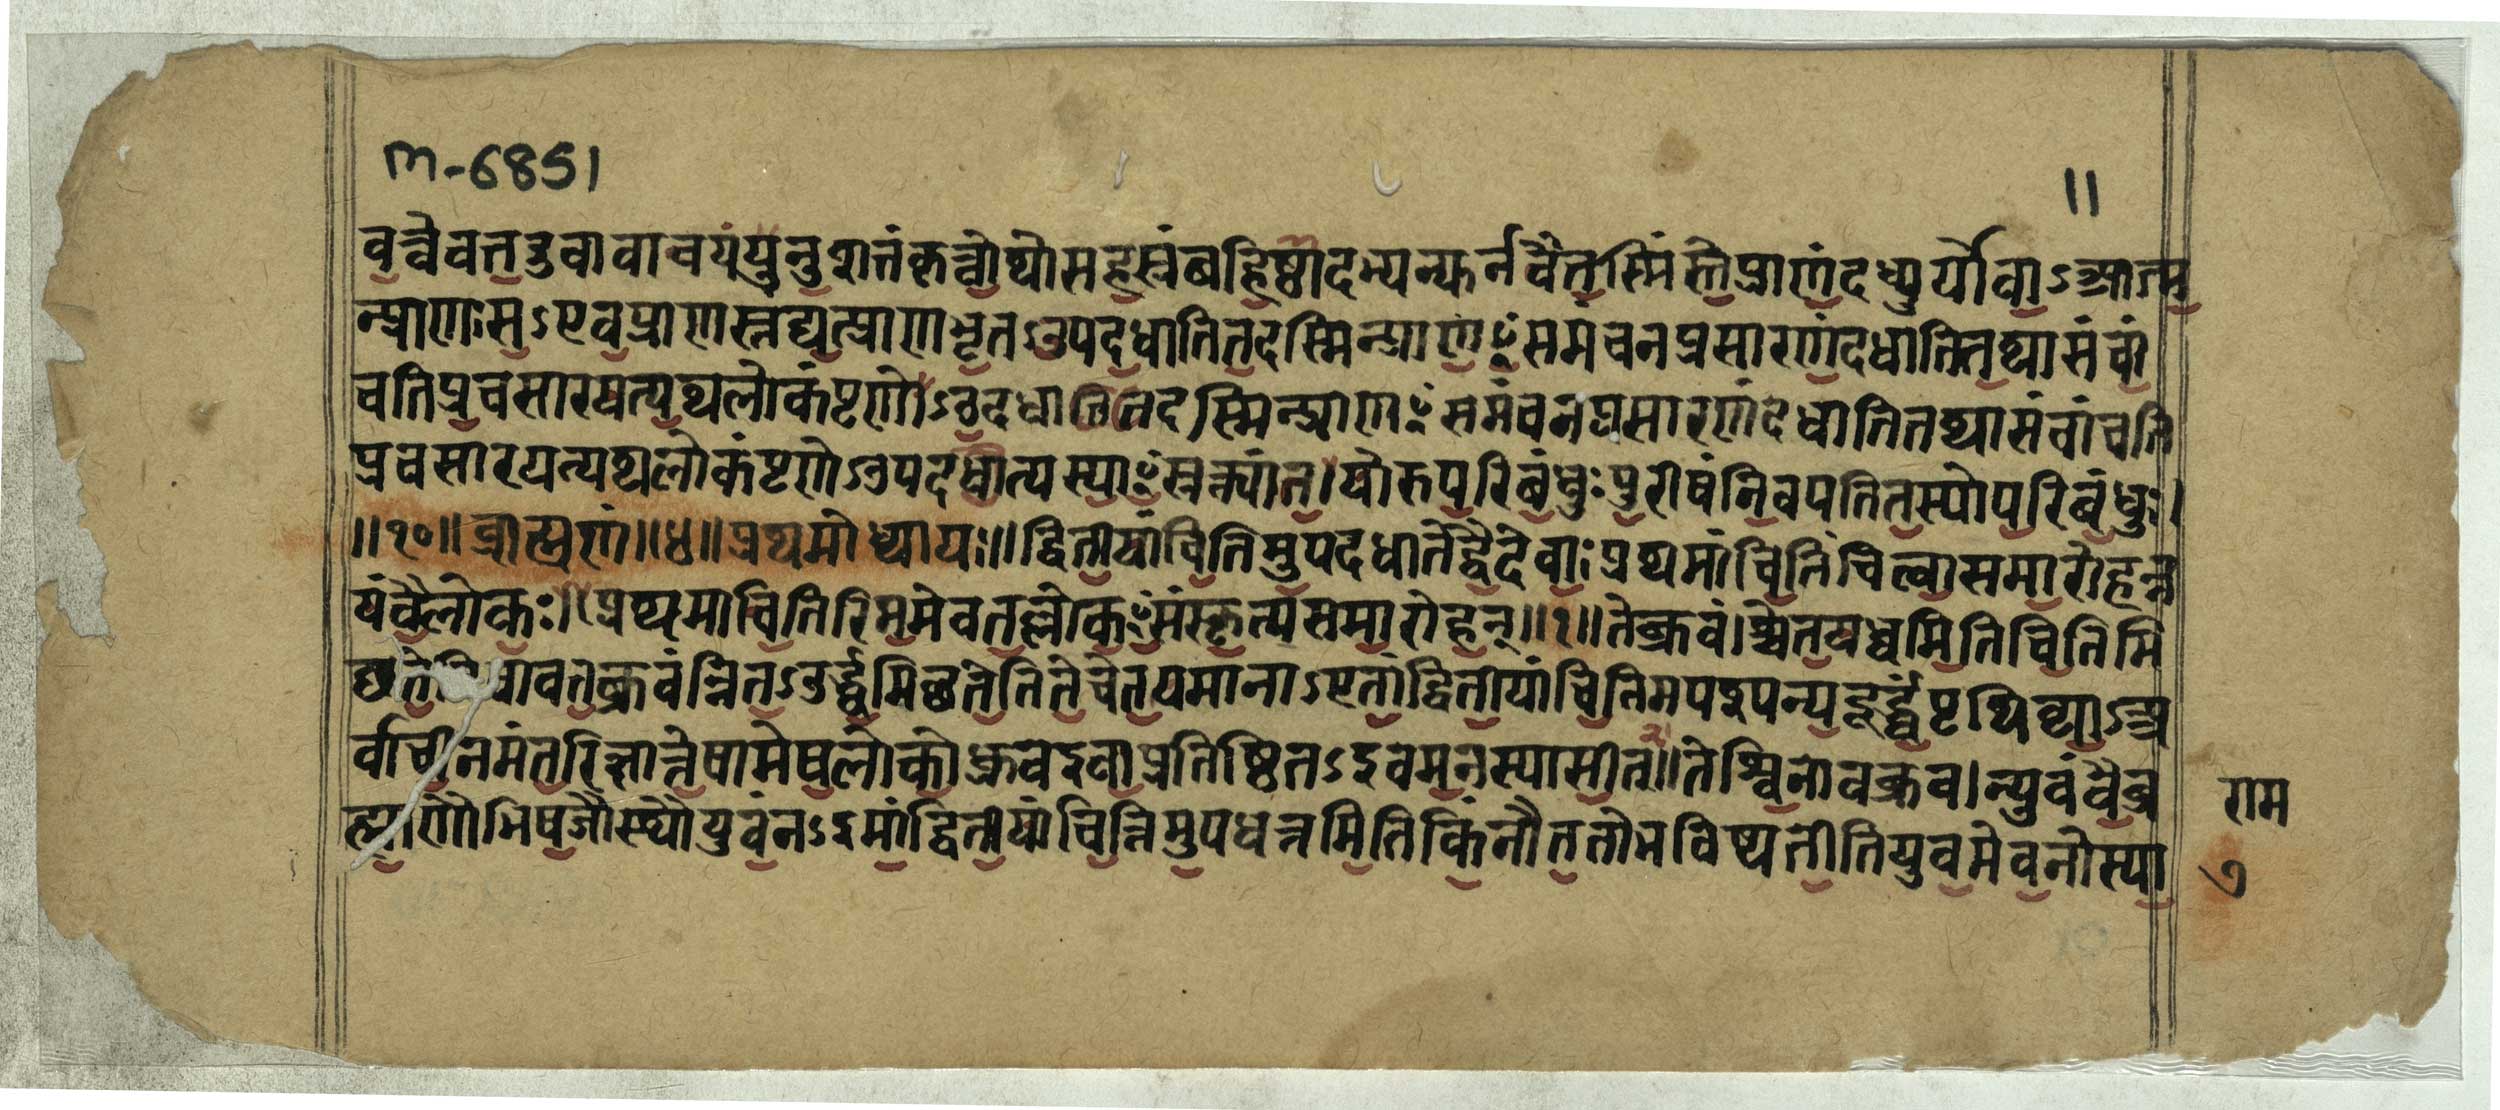 m-6851
11
वन्नैवत्तदुवावाचयंयुनुशतंकृन्वोथोसहस्रंबहिष्ठादभ्यन्फर्नवैतस्मिंस्तेप्राणंदध्युर्योवाऽआत्म
न्प्राणःसऽएवप्राणस्तद्यत्प्राणभृतऽउपदधातितदस्मिन्प्राणꣳसमंचनप्रसारणंदधातितथासंचां
चतिप्रचसारयत्यथलोकंपृणेऽउदधातितदस्मिन्प्राणꣳसमंचनप्रसारणंदधातितथासंचांचति
प्रचसारयत्यथलोकंपृणेऽउपदधात्यस्याꣳस्रक्त्यांतयोरुपरिबंधुःपुरीषंनिवपतितस्योपरिबंधुः।
॥१०॥ब्रीत्मणं॥४॥प्रथमोध्यायः॥द्वितीयांचितिमुपदधातेद्वैदेवाःप्रथमांचितिंचित्वासमारोहन्न
यंवैलोकः।प्रथमाचितिरिममेवतल्लोकꣳसंस्कृत्यसमारोहन्॥१॥तेब्रुवं।श्चेतयध्वमितिचितिमि
छतेतिवावतब्रुवंन्नितऽउर्द्ध्वमिच्छतेतितेचेतयमानाऽएतांद्वितीयांचितिमपश्यन्यदूर्द्ध्वंपृथिव्याऽअ
र्वाचीनमंतरिक्षात्तेषामेषलोकोध्रुवइवाप्रतिष्ठितऽइवमनस्यासीत्॥२॥तेश्विनावब्रुव।न्युवंवैब्र
ह्माणौभिषजौस्थोयुवंनऽइमांद्वितीयांचितिमुपधत्तमितिकिंनौततोभविष्यतीतियुवमेवनोस्या
राम
७